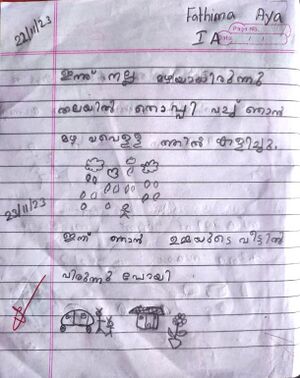 Fathima Aya
22/11/23
I A
Page No.
ഇന്ന് നല്ല മഴയായിരുന്നു
തലയിൽ തൊപ്പി വച്ച് ഞാൻ
മഴ വെള്ള ത്തിൽ കളിച്ചു.
23/11/23
ഇന്ന് ഞാൻ ഉമ്മയുടെ വീട്ടിൽ
വിരുന്നു പോയി